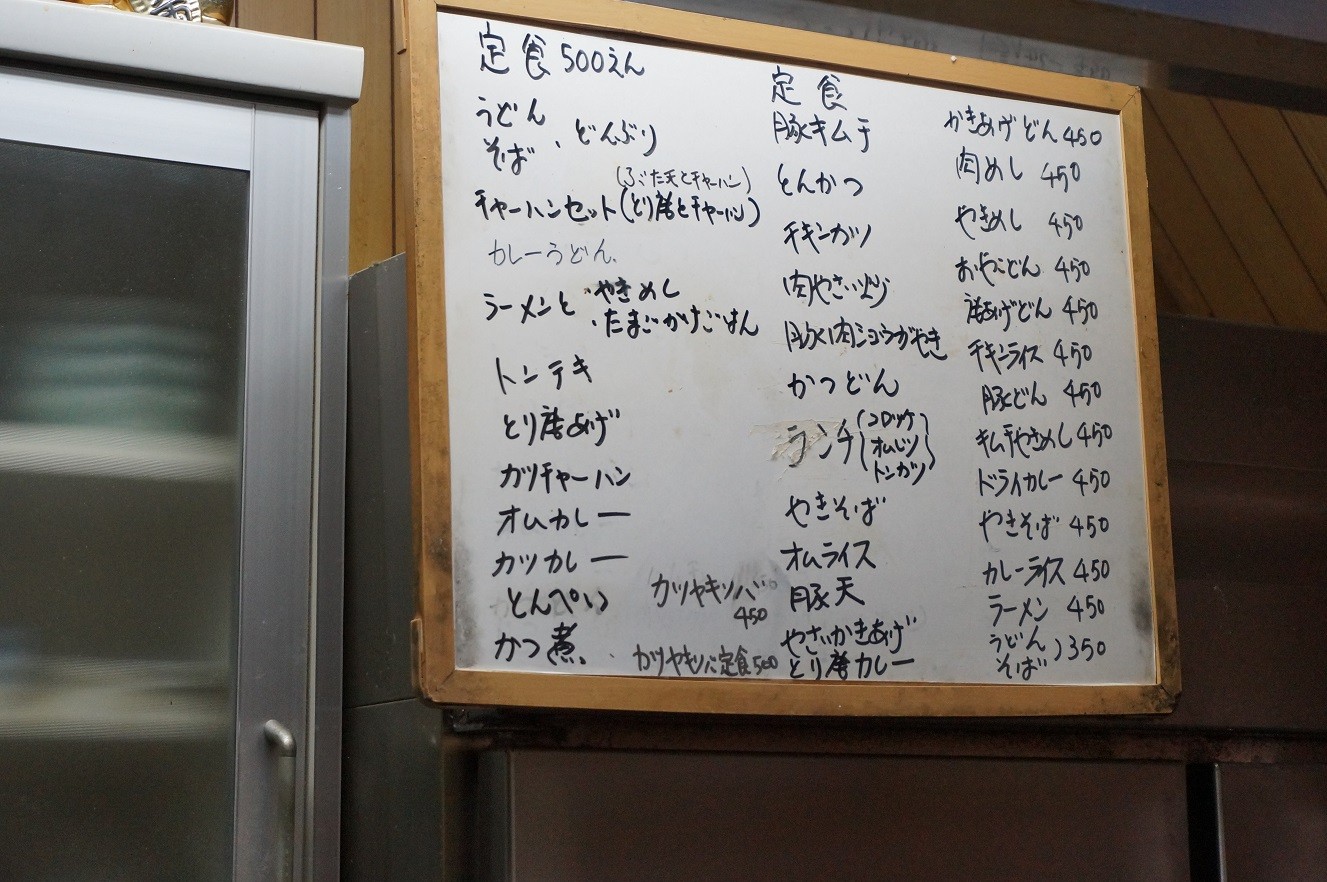 定食500えん
うどん
そば 、どんぶり
(ぶた天とチャーハン)
チャーハンセット(とり唐とチャーハン)
カレーうどん
ラーメンと ・やきめし
・たまごかけごはん
トンテキ
とり唐あげ
カツチャーハン
オムカレー
カツカレー
とんぺい
かつ煮
カツヤキソバ
450
カツヤキソバ定食500
定食
豚キムチ
とんかつ
チキンカツ
肉やさい炒
豚肉ショウガやき
かつどん
ランチ(コロッケ
オムレツ
トンカツ)
やきそば
オムライス
豚天
やさいかきあげ
とり唐カレー
かきあげどん 450
肉めし 450
やきめし 450
おやこどん 450
唐あげどん 450
チキンライス 450
豚どん 450
キムチやきめし 450
ドライカレー 450
やきそば 450
カレーライス 450
ラーメン 450
うどん
そば )350